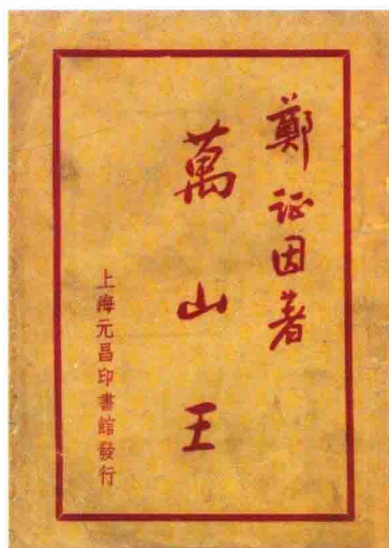 鄭证因著
萬山王
上海元昌印書館發行